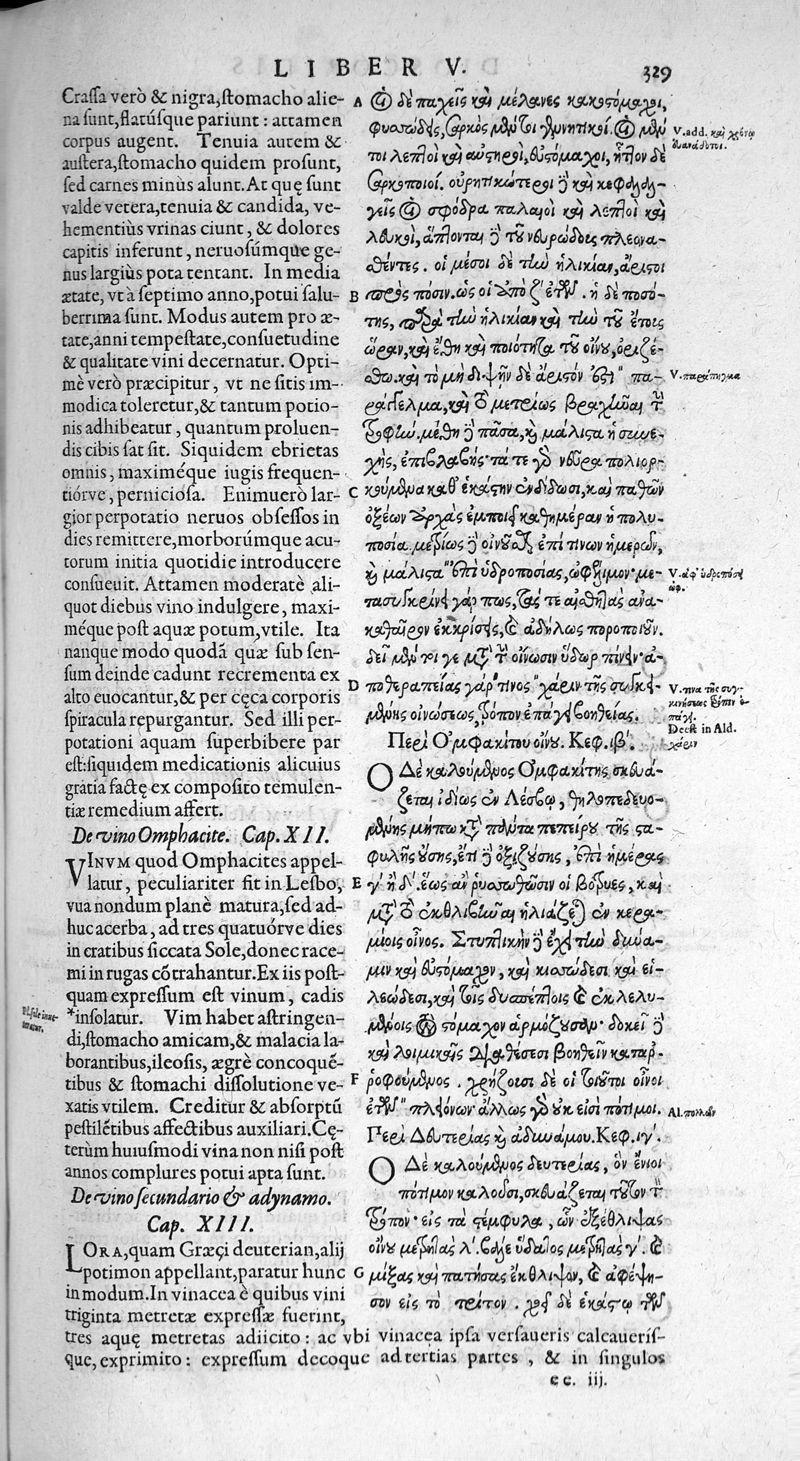 LIBER V. 329
Crassa verò & nigra, stomacho alie-
na sunt, flatúsque pariunt: attamen
corpus augent. Tenuia autem &
austera, stomacho quidem prosunt,
sed carnes minùs alunt. At quę sunt
valde vetera, tenuia & candida, ve-
hementiùs vrinas ciunt, & dolores
capitis inferunt, neruosúmque ge-
nus largiùs pota tentant. In media
ætate, vt à septimo anno, potui salu-
berrima sunt. Modus autem pro æ-
tate, anni tempestate, consuetudine
& qualitate vini decernatur. Opti-
mè verò præcipitur, vt ne sitis im-
modica toleretur, & tantum potio-
nis adhibeatur, quantum proluen-
dis cibis sat sit. Siquidem ebrietas
omnis, maximéque iugis frequen-
tiórve, perniciosa. Enimuerò lar-
gior perpotatio neruos obsessos in
dies remittere, morborúmque acu-
torum initia quotidie introducere
consueuit. Attamen moderatè ali-
quot diebus vino indulgere, maxi-
méque post aquæ potum, vtile. Ita
nanque modo quodā quæ sub sen-
sum deinde cadunt recrementa ex
alto euocantur, & per cęca corporis
spiracula repurgantur. Sed illi per-
potationi aquam superbibere par
est: siquidem medicationis alicuius
gratia factę ex composito temulen-
tiæ remedium affert.
De vino Omphacite. Cap. XII.
VINVM quod Omphacites appel-
latur, peculiariter fit in Lesbo,
vua nondum planè matura, sed ad-
huc acerba, ad tres quatuórve dies
in cratibus siccata Sole, donec race-
mi in rugas cōtrahantur. Ex iis post-
quam expressum est vinum, cadis
*insolatur. Vim habet astringen-
di, stomacho amicam, & malacia la-
borantibus, ileosis, ægrè concoquē-
tibus & stomachi dissolutione ve-
xatis vtilem. Creditur & absorptū
pestilētibus affectibus auxiliari. Cę-
terùm huiusmodi vina non nisi post
annos complures potui apta sunt.
De vino secundario & adynamo.
Cap. XIII.
LORA, quam Græçi deuterian, alij
potimon appellant, paratur hunc
in modum. In vinacea è quibus vini
triginta metretæ expressæ fuerint,
A οἱ δὲ παχεῖς καὶ μέλανες κακοστόμαχοι,
φυσώδεις, σαρκὸς μέντοι γεννητικοί. οἱ μέν
τοι λεπτοὶ καὶ αὐστηροὶ, εὐστόμαχοι, ἧττον δὲ
σαρκοποιοί. οὐρητικώτεροι δὲ καὶ κεφαλαλ-
γεῖς οἱ σφόδρα παλαιοὶ καὶ λεπτοὶ καὶ
λευκοὶ, ἅπτονται δὲ τοῦ νευρώδους πλεονα-
σθέντες. οἱ μέσοι δὲ τὴν ἡλικίαν, ἄριστοι
B πρὸς πόσιν. ὡς οἱ ἀπὸ ζʹ ἐτῶν. ἡ δὲ ποσό-
της, παρὰ τὴν ἡλικίαν καὶ τὴν τοῦ ἔτους
ὥραν, καὶ ἔθη καὶ ποιότητα τοῦ οἴνου, ὁριζέ-
σθω. καὶ τὸ μὴ διψῆν δὲ ἄριστόν ἐστι " πα-
ράγγελμα, καὶ τὸ μετρίως βραχῆναι τὴν
τροφήν. μέθη δὲ πᾶσα, καὶ μάλιστα ἡ συνε-
χὴς, ἐπιβλαβής· τά τε γὰρ νεῦρα πολιορ-
C κούμενα καθ' ἑκάστην ἐνδίδωσι, καὶ παθῶν
ὀξέων ἀρχὰς ἐμποιεῖ καθημέραν ἡ πολυ-
ποσία. μετρίως δὲ οἰνοῦσθαι ἐπί τινων ἡμερῶν,
καὶ μάλιστα "ἐπὶ ὑδροποσίας, ὠφέλιμον· με-
τασυγκρίνει γάρ πως, τάς τε αἰσθητὰς ἀνα-
καθαῖρον ἐκκρίσεις, καὶ ἀδήλως ποροποιοῦν.
δεῖ μέντοι γε μετὰ τὴν οἴνωσιν ὕδωρ πίνειν· ἀ-
D ποθεραπείας γάρ "τινος "χάριν τῆς συγκει-
μένης οἰνώσεως, τρόπον ἐπάγει βοηθείας.
Περὶ Ὀμφακίτου οἴνου. Κεφ. ιβʹ.
Ὁ Δὲ καλούμενος Ὀμφακίτης σκευά-
ζεται ἰδίως ἐν Λέσβῳ, θηλοπεδευο-
μένης μήπω κατὰ πάντα πεπείρου τῆς στα-
φυλῆς οὔσης, ἔτι δὲ ὀξιζούσης, ἐπὶ ἡμέρας
E γʹ ἢ δʹ. ἕως ἂν ῥυσωθῶσιν οἱ βότρυες, καὶ
μετὰ τὸ ἐκθλιβῆναι ἡλιάζεται ἐν κερα-
μίοις οἶνος. Στυπτικὴν δὲ ἔχει τὴν δύνα-
μιν καὶ εὐστόμαχον, καὶ κισσώδεσι καὶ εἰ-
λεώδεσι, καὶ τοῖς δυσπέπτοις καὶ ἐκλελυ-
μένοις τὸν στόμαχον ἁρμόζουσαν· δοκεῖ δὲ
καὶ λοιμικαῖς διαθέσεσι βοηθεῖν καταρ-
F ροφούμενος. χρῄζουσι δὲ οἱ τοιοῦτοι οἶνοι
ἐτῶν "πλειόνων· ἄλλως γὰρ οὔκ εἰσι πότιμοι.
Περὶ Δευτερίας καὶ ἀδυνάμου. Κεφ. ιγʹ.
Ὁ Δὲ καλούμενος δευτερίας, ὃν ἔνιοι
πότιμον καλοῦσι, σκευάζεται τοῦτον τὸν
τρόπον· εἰς τὰ στέμφυλα, ὧν ἐξέθλιψας
οἴνου μετρητὰς λʹ. βάλε ὕδατος μετρητὰς γʹ. καὶ
G μίξας καὶ πατήσας ἔκθλιψον, καὶ ἀφέψη-
σον εἰς τὸ τρίτον. χρὴ δὲ ἑκάστῳ τῶν
V. add. καὶ χρόνῳ
V. παράπηγμα
V. ἀφ' ὑδροποσίας
ὠφ.
V. τινα τῆς συγ-
κινήσεως τρόπον ἐ-
πάγει.
Deest in Ald.
χάριν
Al. πολλῶν
tres aquę metretas adiicito: ac vbi vinacea ipsa versaueris calcauerís-
que, exprimito: expressum decoque ad tertias partes, & in singulos
ee. iij.